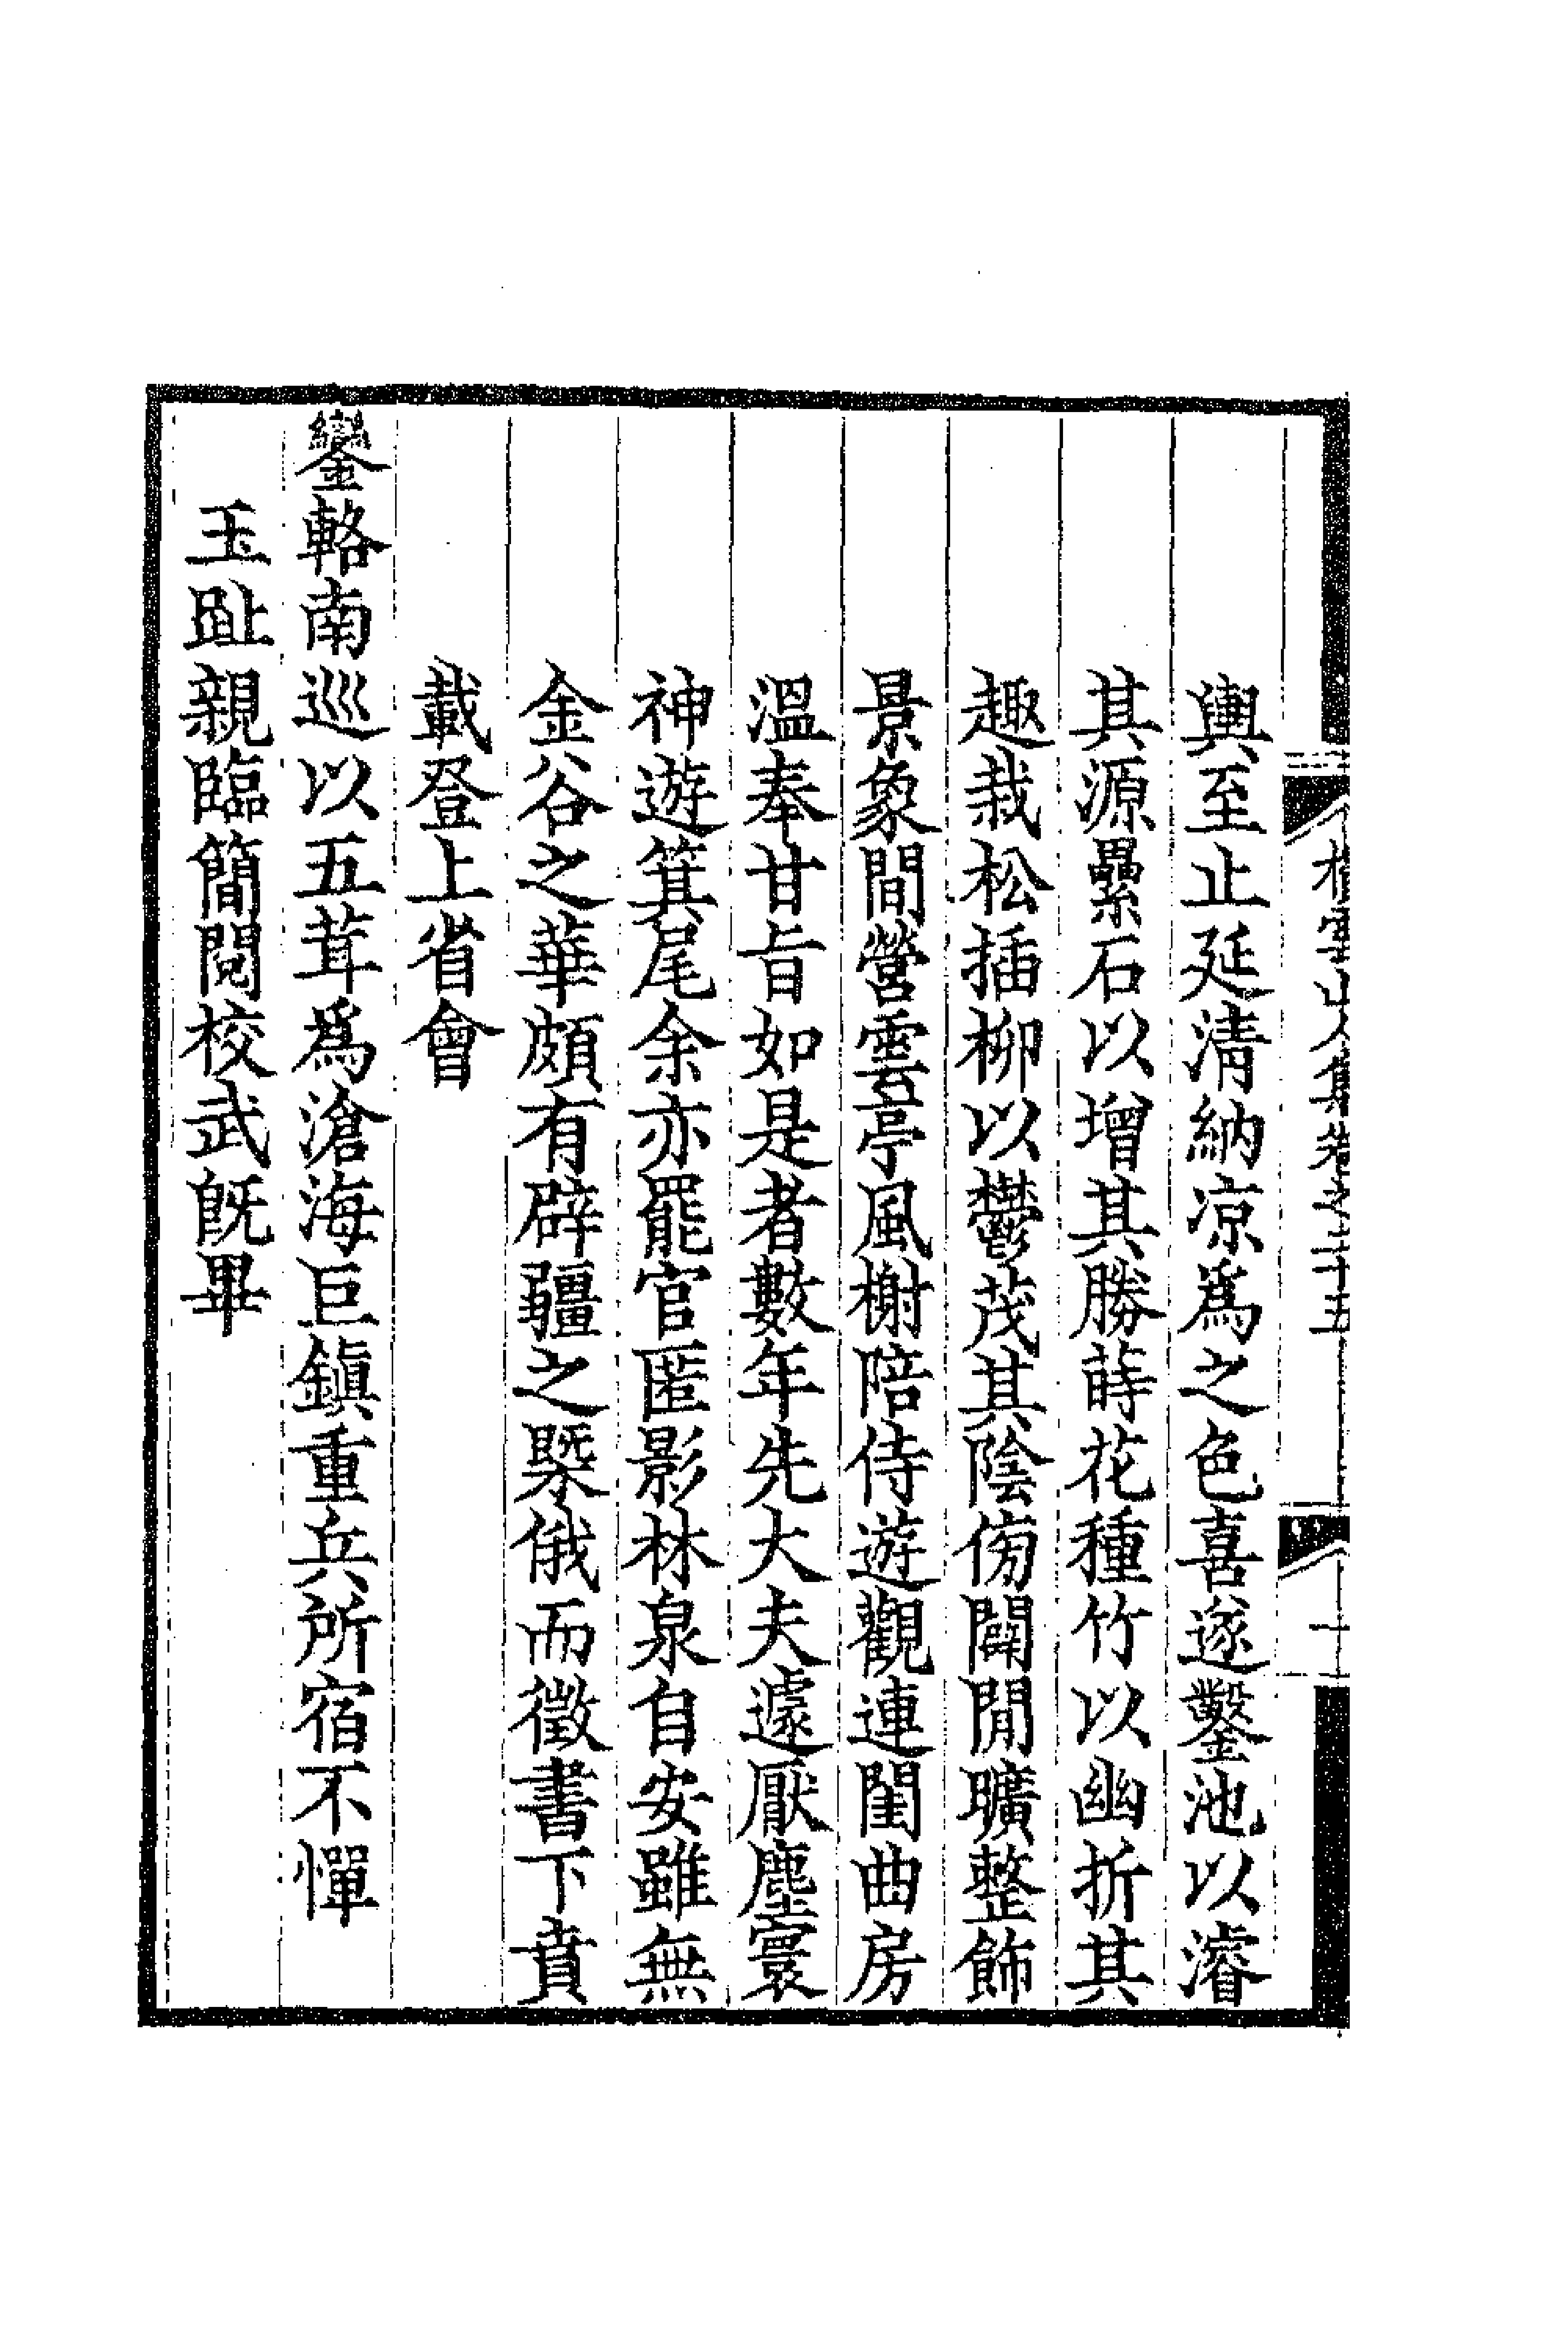 山人集卷之二十五
一
輿至止延清納凉爲之色喜遂鑿池以濬
其源纍石以增其勝蒔花種竹以幽折其
趣栽松插柳以鬱茂其陰傍闢閒曠整飾
景象間營雲亭風榭陪侍遊觀連闈曲房
溫奉甘旨如是者數年先大夫遽厭塵寰
神遊箕尾余亦罷官匿影林泉自安雖無
金谷之華頗有辟疆之槩俄而徵書下賁
載登上省會
鑾輅南巡以五茸爲滄海巨鎮重兵所宿不憚
玉趾親臨簡閱校武旣畢